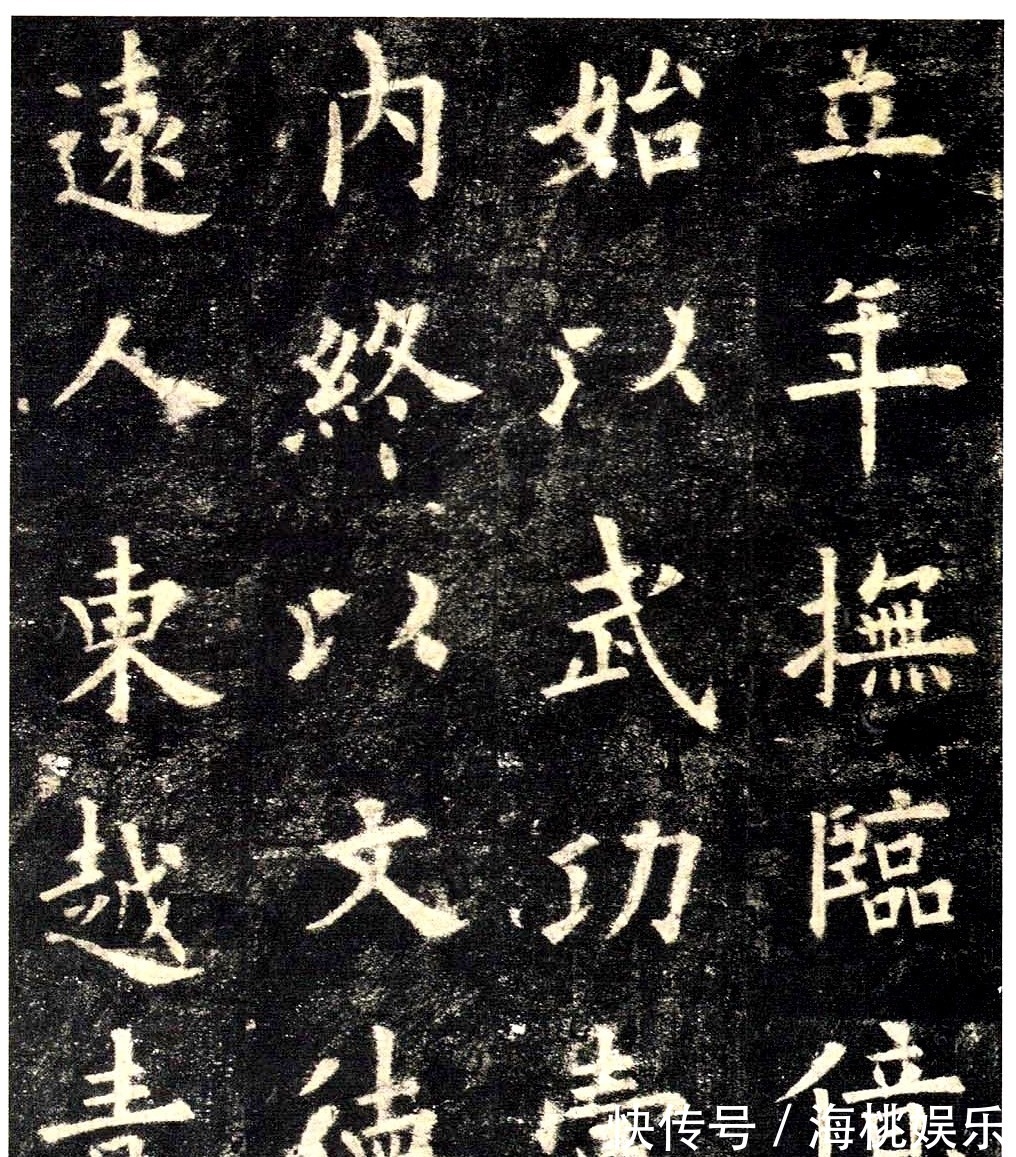 立年撫臨億
始以武功壹
内終以文德
遠人東越青
快传号 / 海桃娱乐